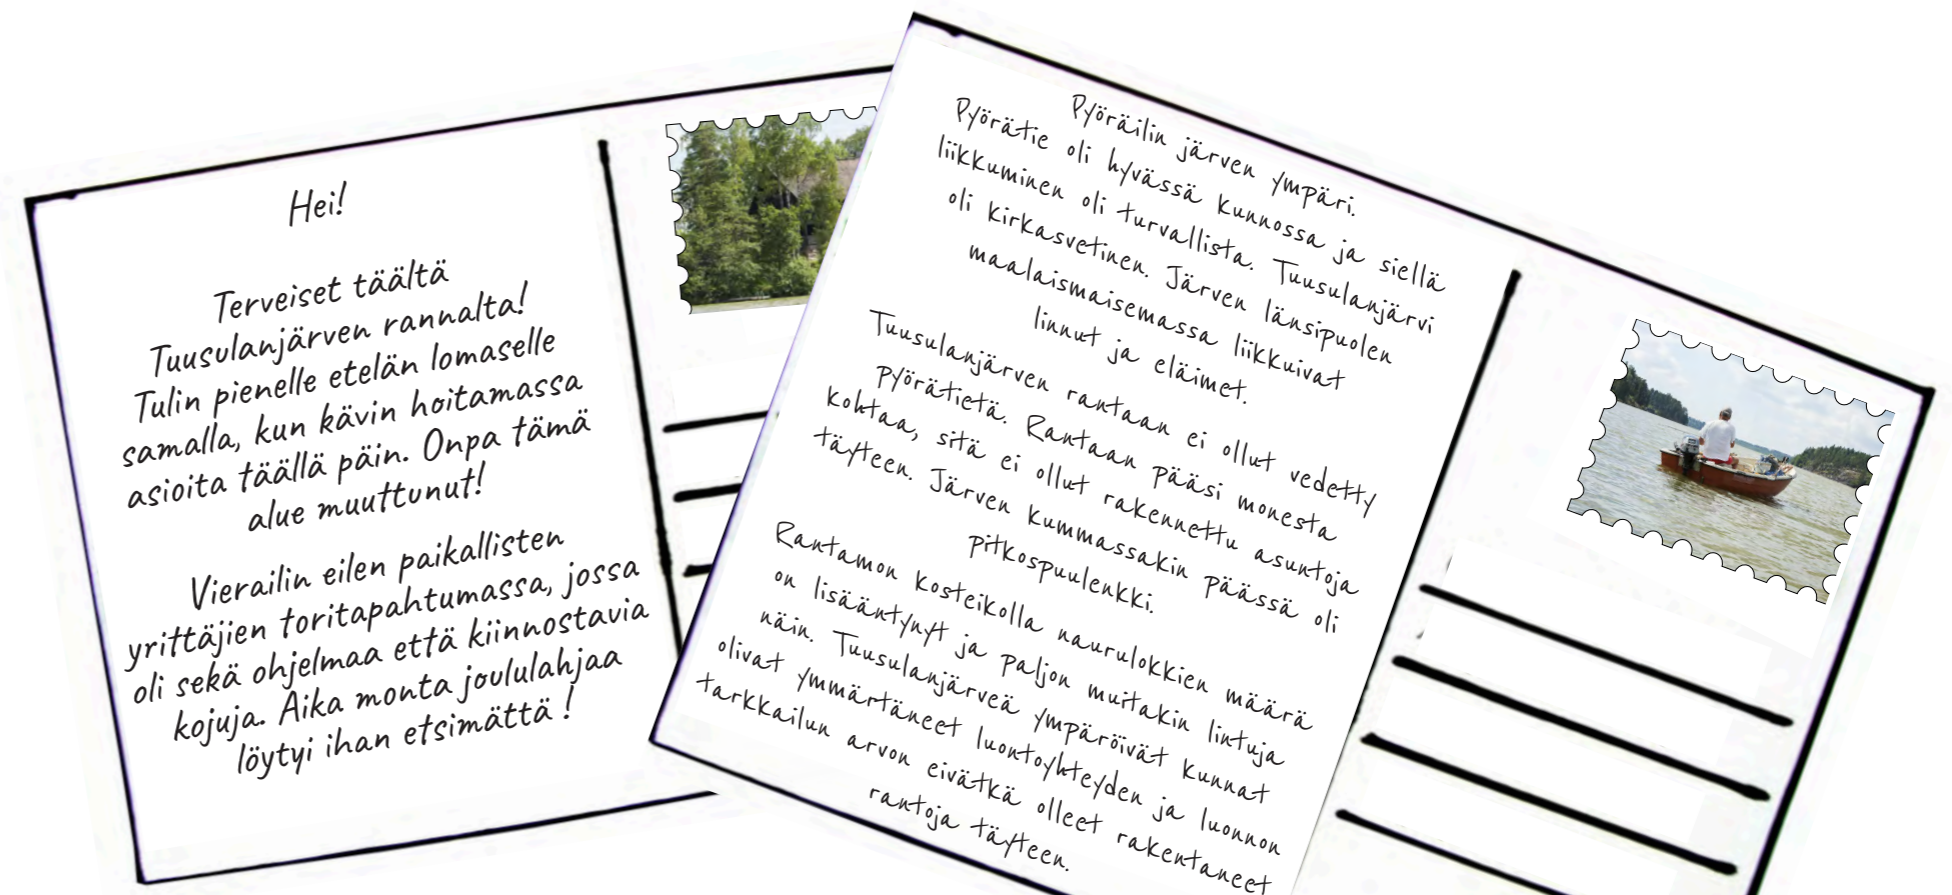 Hei!
Terveiset täältä
Tuusulanjärven rannalta!
Tulin pienelle etelän lomaselle
samalla, kun kävin hoitamassa
asioita täällä päin. Onpa tämä
alue muuttunut!
Vierailin eilen paikallisten
yrittäjien toritapahtumassa, jossa
oli sekä ohjelmaa että kiinnostavia
kojuja. Aika monta joululahjaa
löytyi ihan etsimättä!
Pyöräilin järven ympäri.
Pyörätie oli hyvässä kunnossa ja siellä
liikkuminen oli turvallista. Tuusulanjärvi
oli kirkasvetinen. Järven länsipuolen
maalaismaisemassa liikkuivat
linnut ja eläimet.
Tuusulanjärven rantaan ei ollut vedetty
pyörätietä. Rantaan pääsi monesta
kohtaa, sitä ei ollut rakennettu asuntoja
täyteen. Järven kummassakin päässä oli
pitkospuulenkki.
Rantamon kosteikolla naurulokkien määrä
on lisääntynyt ja paljon muitakin lintuja
näin. Tuusulanjärveä ympäröivät kunnat
olivat ymmärtäneet luontoyhteyden ja luonnon
tarkkailun arvon eivätkä olleet rakentaneet
rantoja täyteen.